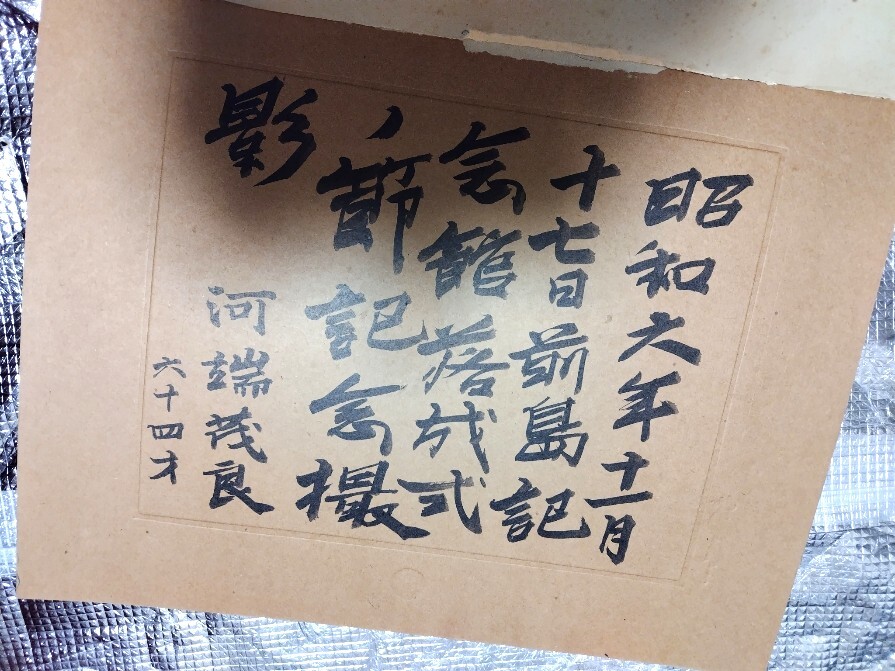 昭和六年十一月
十七日前島記
念館落成式
ノ節記念撮
影
河端茂良
六十四才